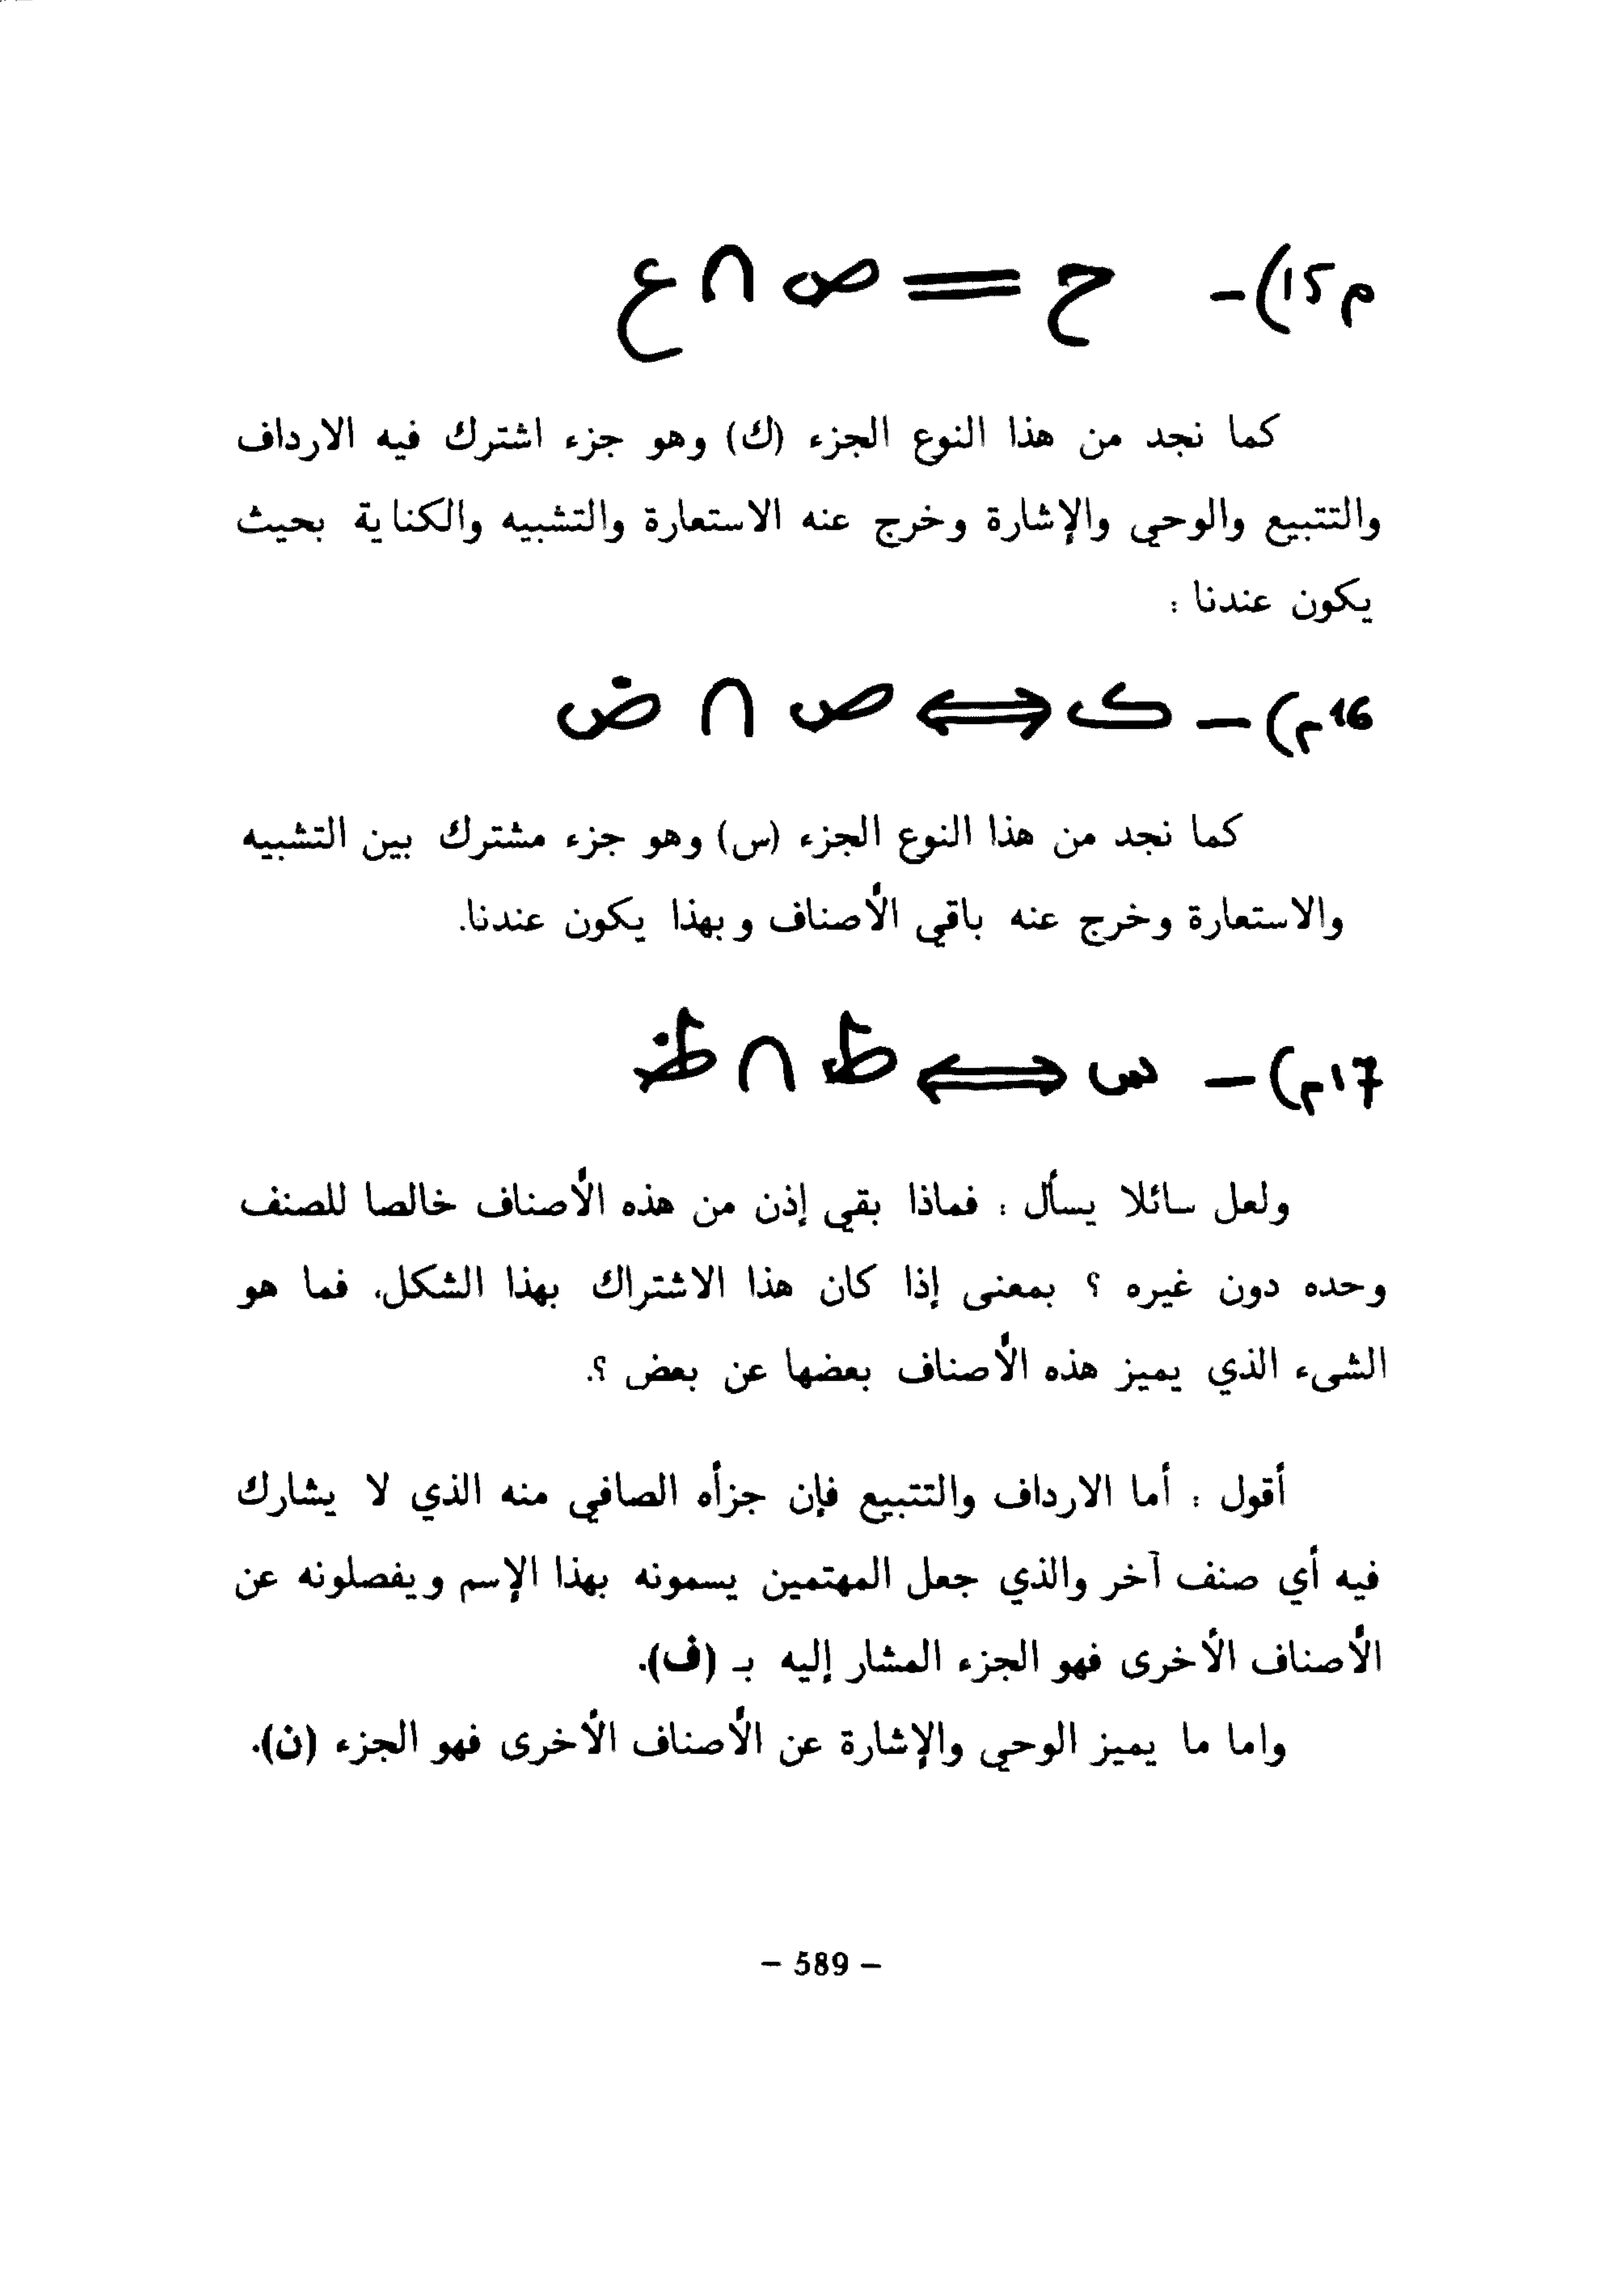 م15)- ح = ص ∩ ع
كما نجد من هذا النوع الجزء (ك) وهو جزء اشترك فيه الارداف
والتتبيع والوحي والإشارة وخرج عنه الاستعارة والتشبيه والكناية بحيث
يكون عندنا :
16م) - ك ⟺ ص ∩ ض
كما نجد من هذا النوع الجزء (س) وهو جزء مشترك بين التشبيه
والاستعارة وخرج عنه باقي الأصناف وبهذا يكون عندنا.
17م) - س ⟺ ط ∩ ظ
ولعل سائلا يسأل : فماذا بقي إذن من هذه الأصناف خالصا للصنف
وحده دون غيره ؟ بمعنى إذا كان هذا الاشتراك بهذا الشكل، فما هو
الشىء الذي يميز هذه الأصناف بعضها عن بعض ؟.
أقول : أما الارداف والتتبيع فإن جزأه الصافي منه الذي لا يشارك
فيه أي صنف آخر والذي جعل المهتمين يسمونه بهذا الإسم ويفصلونه عن
الأصناف الأخرى فهو الجزء المشار إليه بـ (ف).
واما ما يميز الوحي والإشارة عن الأصناف الأخرى فهو الجزء (ن).
- 589 -